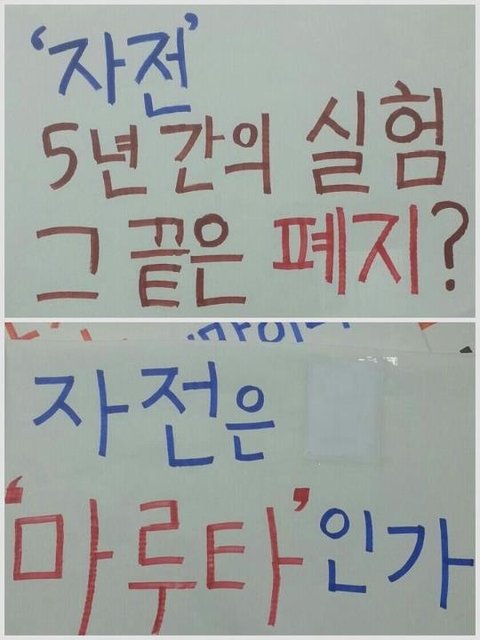 ‘자전’
5년간의 실험
그 끝은 폐지?
자전은
‘마루타’인가